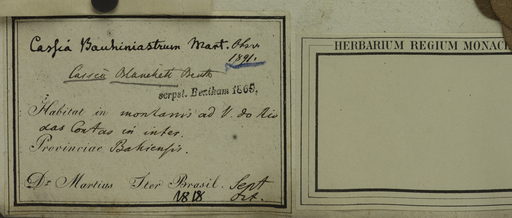 Cassia Bauhiniastrum Mart. Obs.
1891.
Cassia Blancheti Benth
scrpst. Bentham 1869.
Habitat in montanis ad V. do Rio
das Contas in inter.
Provinciae Bahiensis.
Dr. Martius Iter Brasil. Sept
1818 Oct.
HERBARIUM REGIUM MONAC